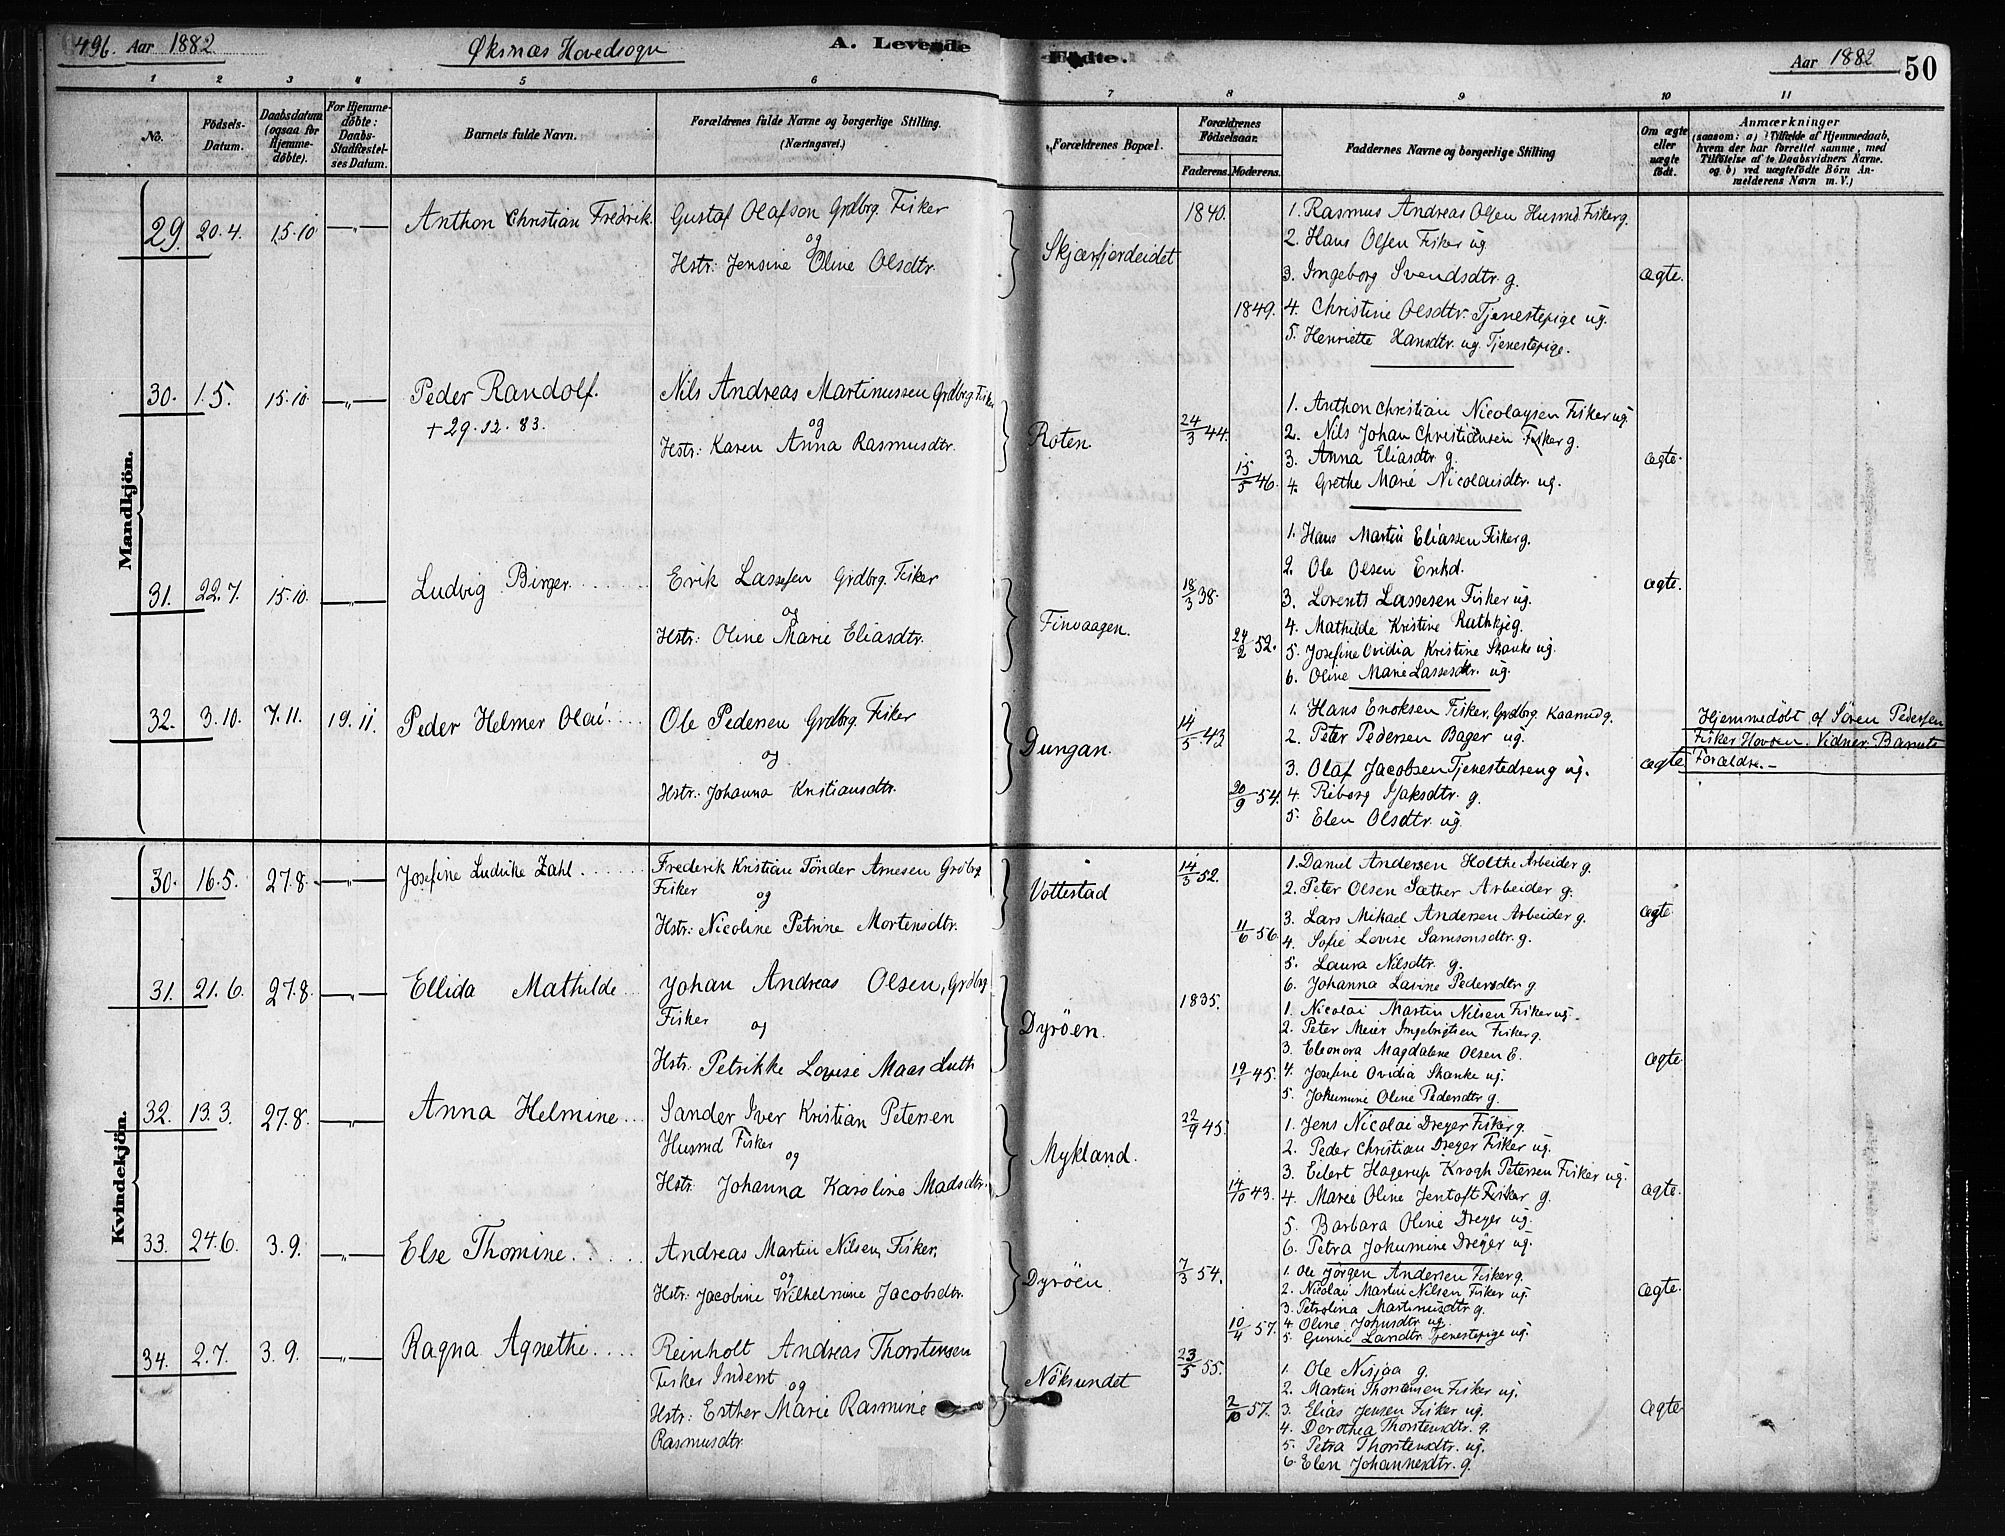 496. Aar 1882 Øksnæs Hovedsogn A. Levende Fødte. Aar 1882 50
1 2 3 4 5 6 7 8 9 10 11
No.
Fødsels-Datum.
Daabsdatum (ogsaa for Hjemmedöbte).
For Hjemmedöbte: Daabs-Stadfæstelses Datum.
Barnets fulde Navn.
Forældrenes fulde Navne og borgerlige Stilling. (Næringsvei.)
Forældrenes Bopæl.
Forældrenes Födselsaar.
Faderens. Moderens.
Faddernes Navne og borgerlige Stilling
Om ægte eller uægte födt.
Anmærkninger
(saasom: a) i Tilfælde af Hjemmedaab,
hvem der har forrettet samme, med
Tilföielse af to Daabsvidners Navne.
og b) ved uægtefödte Börn An-
melderens Navn m. V.)
Mandkjön.
29. 20.4. 15.10 —„— Anthon Christian Fredrik Gustaf Olafson Grdbrg. Fisker
og
Hstr: Jensine Oline Olsdtr.
Skjærfjordeidet
1840.
1849.
1. Rasmus Andreas Olsen Husmd. Fisker g.
2. Hans Olsen Fisker ug
3. Ingeborg Svendsdtr. g.
4. Christine Olsdtr. Tjenestepige ug.
5. Henriette Hansdtr. ug. Tjenestepige.
ægte.
30. 1.5. 15.10 —„— Peder Randolf.
+ 29.12.83.
Nils Andreas Martinussen Grdbrg Fisker
og
Hstr: Karen Anna Rasmusdtr.
Roten
24/3 44.
15/5 46.
1. Anthon Christian Nicolaysen Fisker ug
2. Nils Johan Christiansen Fisker g.
3. Anna Eliasdtr g.
4. Grethe Marie Nicolaisdtr. ug.
ægte.
31. 22.7. 15.10 —„— Ludvig Birger.
Erik Lassesen Grdbrg. Fisker
og
Hstr: Oline Marie Eliasdtr.
Finvaagen.
18/3 38.
24/2 52.
1. Hans Martin Eliassen Fisker g.
2. Ole Olsen Enkd.
3. Lorents Lassesen Fisker ug.
4. Mathilde Kristine Rathkje g.
5. Josefine Ovidia Kristine Skanke ug.
6. Oline Marie Lassesdtr. ug.
ægte.
32. 3.10. 7.11. 19.11. Peder Helmer Olai
Ole Pedersen Grdbrg. Fisker
og
Hstr: Johanna Kristiansdtr.
Dungan.
14/5 43
20/9 54.
1. Hans Enoksen Fisker, Grdbrg. Kaanud g.
2. Peter Pedersen Bager ug.
3. Olaf Jacobsen Tjenestedreng ug.
4. Riborg Isaksdtr. g.
5. Elen Olsdtr. ug.
ægte
Hjemmedöbt af Sören Pedersen
Fisker Hovden. Vidner: Barnets
Forældre.
Kvindekjön.
30. 16.5. 27.8. —„— Josefine Ludrike Zahl
Frederik Kristian Tönder Arnesen Grdbrg
Fisker
og
Hstr: Nicoline Petrine Mortensdtr.
Vottestad
14/3 52.
11/6 56.
1. Daniel Andersen Holthe Arbeider g.
2. Peter Olsen Sæther Arbeider g.
3. Lars Mikael Andersen Arbeider g.
4. Sofie Lovise Samsonsdtr. g.
5. Laura Nilsdtr. g.
6. Johanna Lavine Pedersdtr g
ægte.
31. 21.6. 27.8. —„— Ellida Mathilde
Johan Andreas Olsen, Grdbrg
Fisker
og
Hstr. Petrikke Lovise Maas Luth
Dyröen.
1835.
19/1 45.
1. Nicolai Martin Nilsen Fisker ug.
2. Peter Meier Ingebrigtsen Fisker g.
3. Eleonora Magdalene Olsen E.
4. Josefine Ovidia Skanke ug.
5. Johumine Oline Pedersdtr g.
ægte
32. 13.3. 27.8. —„— Anna Helmine
Sander Iver Kristian Petersen
Husmd Fisker
og
Hstr. Johanna Karoline Madsdtr.
Mykland.
22/9 45.
14/10 43.
1. Jens Nicolai Dreyer Fisker g.
2. Peder Christian Dreyer Fisker ug.
3. Eilert Hagerup Krogh Petersen Fisker ug.
4. Marie Oline Jentoft Fisker g.
5. Barbara Oline Dreyer ug.
6. Petra Johumine Dreyer ug.
ægte.
33. 24.6. 3.9. —„— Else Thomine.
Andreas Martin Nilsen, Fisker,
og
Hstr: Jacobine Wilhelmine Jacobsdtr.
Dyröen
7/3 54.
10/4 57.
1. Ole Jörgen Andersen Fisker g.
2. Nicolai Martin Nilsen Fisker ug.
3. Petrolina Martinusdtr g.
4. Oline Johnsdtr ug.
5. Gunine Larsdtr Tjenestepige ug.
ægte.
34. 2.7. 3.9. —„— Ragna Agnethe
Reinholt Andreas Thorstensen
Fisker Inderst
og
Hstr: Esther Marie Rasmine
Rasmusdtr.
Nöksundet
23/5 55.
2/10 57.
1. Ole Nisjaa g.
2. Martin Thorstensen Fisker ug.
3. Elias Jensen Fisker ug.
4. Dorothea Thorstensdtr. g.
5. Petra Thorstensdtr. ug.
6. Elen Johannesdtr. g.
ægte.